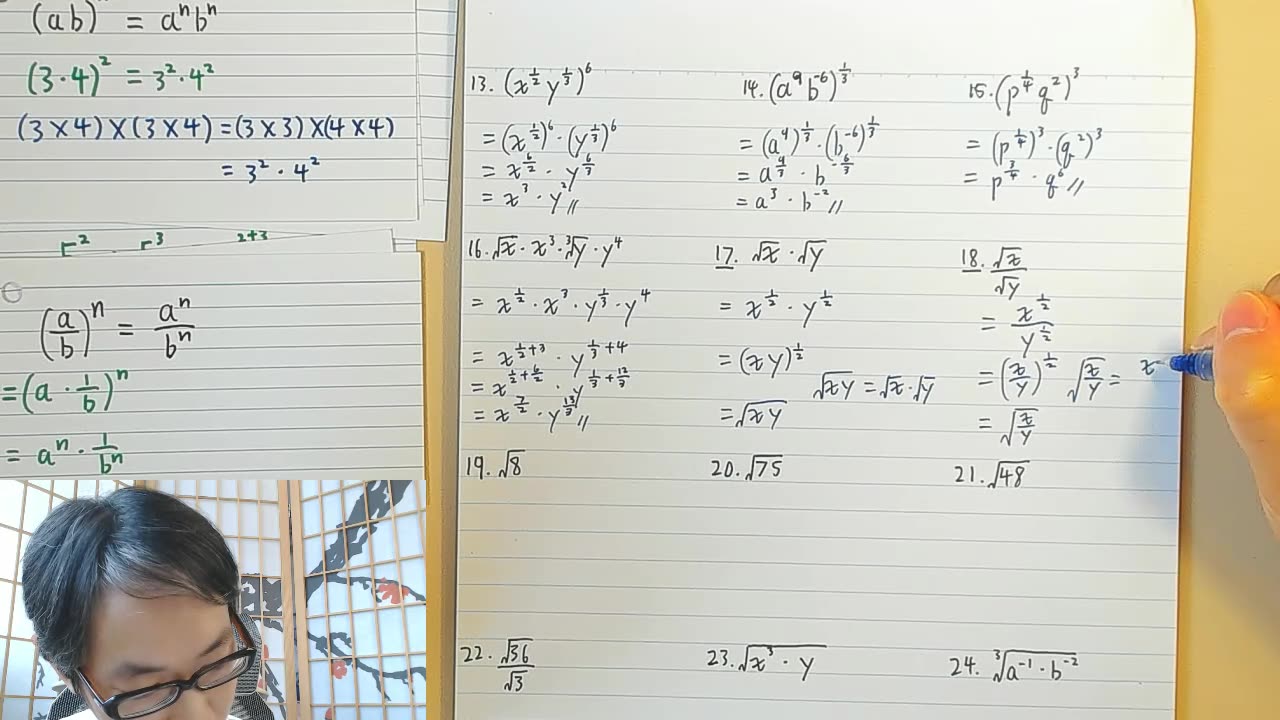 (ab)ⁿ = aⁿbⁿ
(3·4)² = 3²·4²
(3×4)×(3×4)=(3×3)×(4×4)
= 3²·4²
r² r³ 2+3
(a/b)ⁿ = aⁿ/bⁿ
=(a·1/b)ⁿ
= aⁿ·1/bⁿ
13. (x^(1/2) y^(1/3))^6
= (x^(1/2))^6 · (y^(1/3))^6
= x^(6/2) · y^(6/3)
= x³ · y² //
14. (a^9 b^-6)^(1/3)
= (a^9)^(1/3) · (b^-6)^(1/3)
= a^(9/3) · b^(-6/3)
= a³ · b^-2 //
15. (p^(1/4) q²)³
= (p^(1/4))³ · (q²)³
= p^(3/4) · q^6 //
16. √x · x³ · ³√y · y⁴
= x^(1/2) · x³ · y^(1/3) · y⁴
= x^(1/2+3) · y^(1/3+4)
= x^(1/2+6/2) · y^(1/3+12/3)
= x^(7/2) · y^(13/3) //
17. √x · √y
= x^(1/2) · y^(1/2)
= (xy)^(1/2)
= √xy
√xy = √x·√y
18. √x/√y
= x^(1/2)/y^(1/2)
= (x/y)^(1/2)
= √(x/y)
√(x/y) = x
19. √8
20. √75
21. √48
22. √36/√3
23. √(x³·y)
24. ³√(a^-1·b^-2)